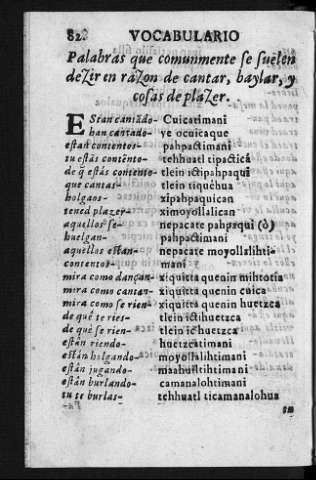 82 VOCABULARIO
Palabras que comunmente se suelen
deZir en raZon de cantar, baylar, y
cosas de plaZer.
EStan cantãdo- Cuicatimani
han cantado- ye ocuicaque
estan contentos- pahpactimani
tu estàs contẽnto- tehhuatl tipacticà
de q̃ estàs contento- tlein ictipahpaqui
que cantas- tlein tiquèhua
holgaos- xipahpaquican
tened plazer- ximoyollalican
aquellos se- nepacate pahpaqui (ò)
huelgan- pahpactimani
aquellos estan- nepacate moyollalihti-
contentos- mani
mira como dançan- xiquitta quenin mihtotia
mira como cantan- xiquitta quenin cuica
mira como se rien- xiquitta quenin huetzca
de què te ries- tlein ictihuetzca
de què se rien- tlein ic huetzca
estàn riendo- huetzcatimani
estàn holgando- moyollalihtimani
estàn jugando- maahuiltihtimani
estàn burlando- camanalohtimani
tu te burlas- tehhuatl ticamanalohua